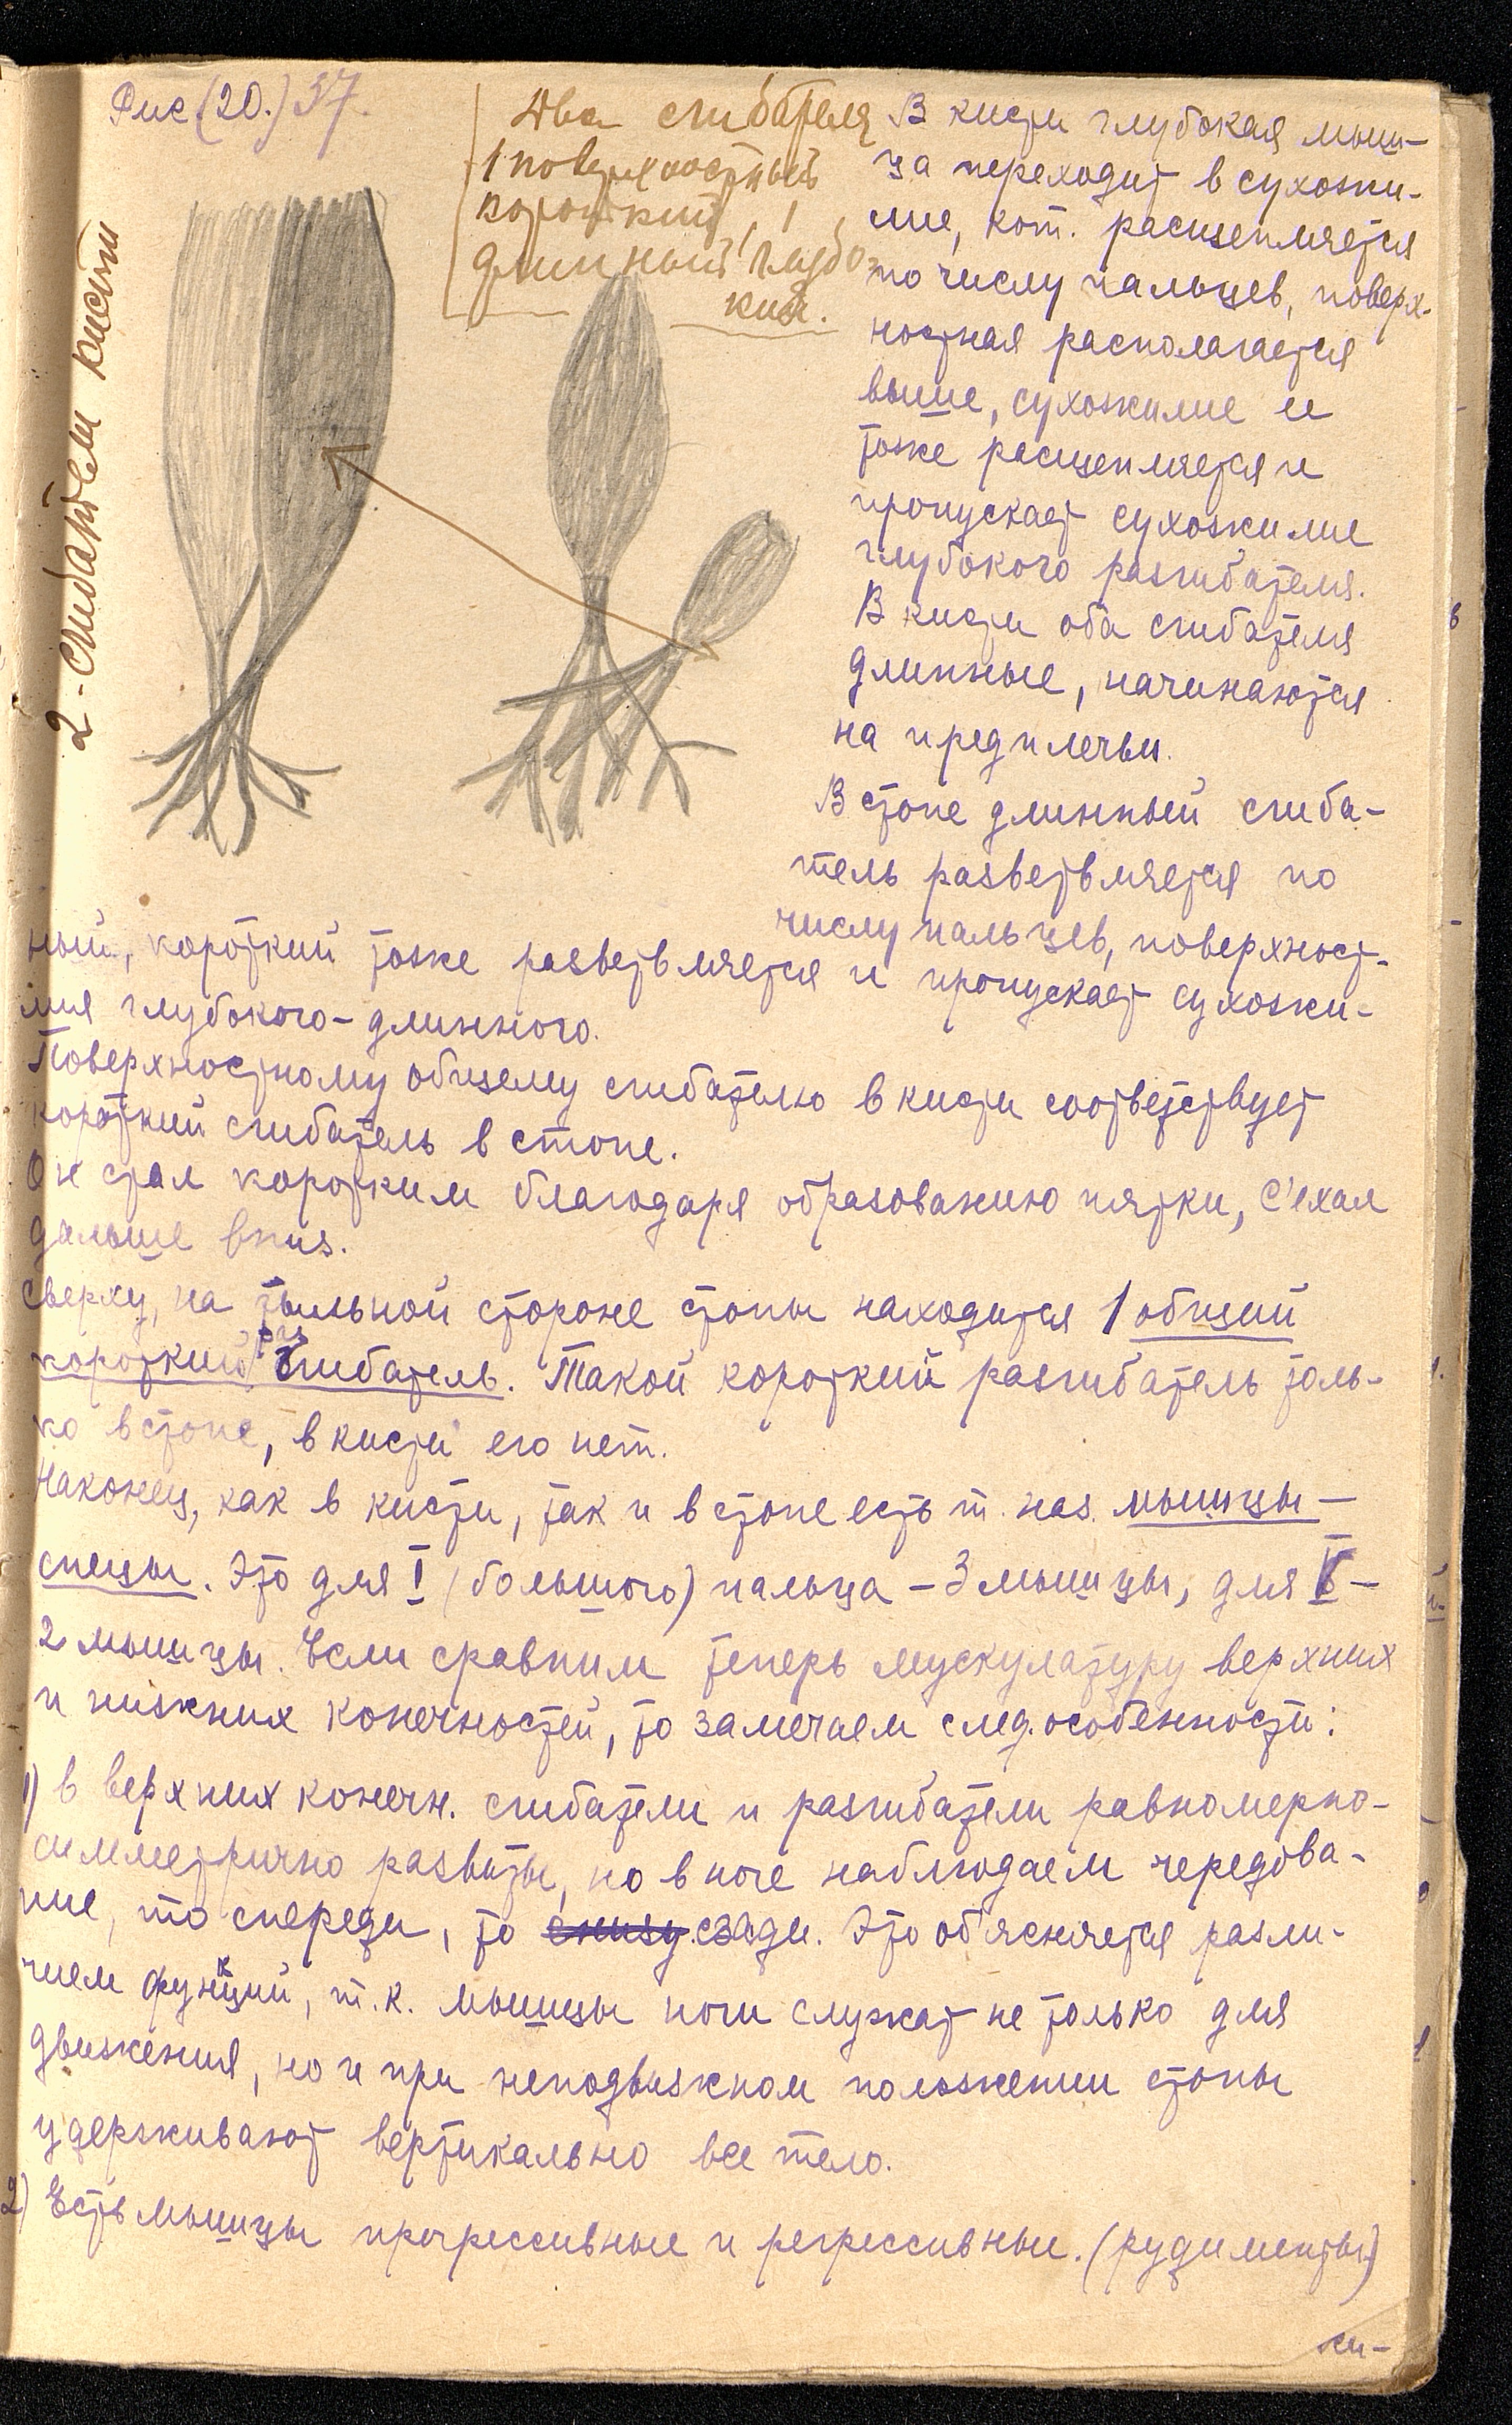 Рис. (20.) 37.
2 - сгибатели кисти
Два сгибателя
1 поверхностный
короткий, 1
длинный глубо-
кий.
В кисти глубокая мыш-
ца переходит в сухожи-
лие, кот. расщепляется
по числу пальцев, поверх-
ностная располагается
выше, сухожилие ее
тоже расщепляется и
пропускает сухожилие
глубокого разгибателя.
В кисти оба сгибателя
длинные, начинаются
на предплечьи.
В стопе длинный сгиба-
тель разветвляется по
числу пальцев, поверхност-
ный, короткий тоже разветвляется и пропускает сухожи-
лия глубокого-длинного.
Поверхностному общему сгибателю в кисти соответствует
короткий сгибатель в стопе.
Он стал коротким благодаря образованию пятки, с'ехал
дальше вниз.
Сверху, на тыльной стороне стопы находится 1 общий
короткий разгибатель. Такой короткий разгибатель толь-
ко в стопе, в кисти его нет.
Наконец, как в кисти, так и в стопе есть т. наз. мышцы-
спецы. Это для I (большого) пальца - 3 мышцы, для V -
2 мышцы. Если сравним теперь мускулатуру верхних
и нижних конечностей, то замечаем след. особенности:
1) в верхних конечн. сгибатели и разгибатели равномерно-
симметрично развиты, но в ноге наблюдаем чередова-
ние, то спереди, то снизу. сзади. Это об'ясняется разли-
чием функций, т.к. мышцы ноги служат не только для
движения, но и при неподвижном положении стопы
удерживают вертикально все тело.
2) Есть мышцы прогрессивные и регрессивные. (рудименты)